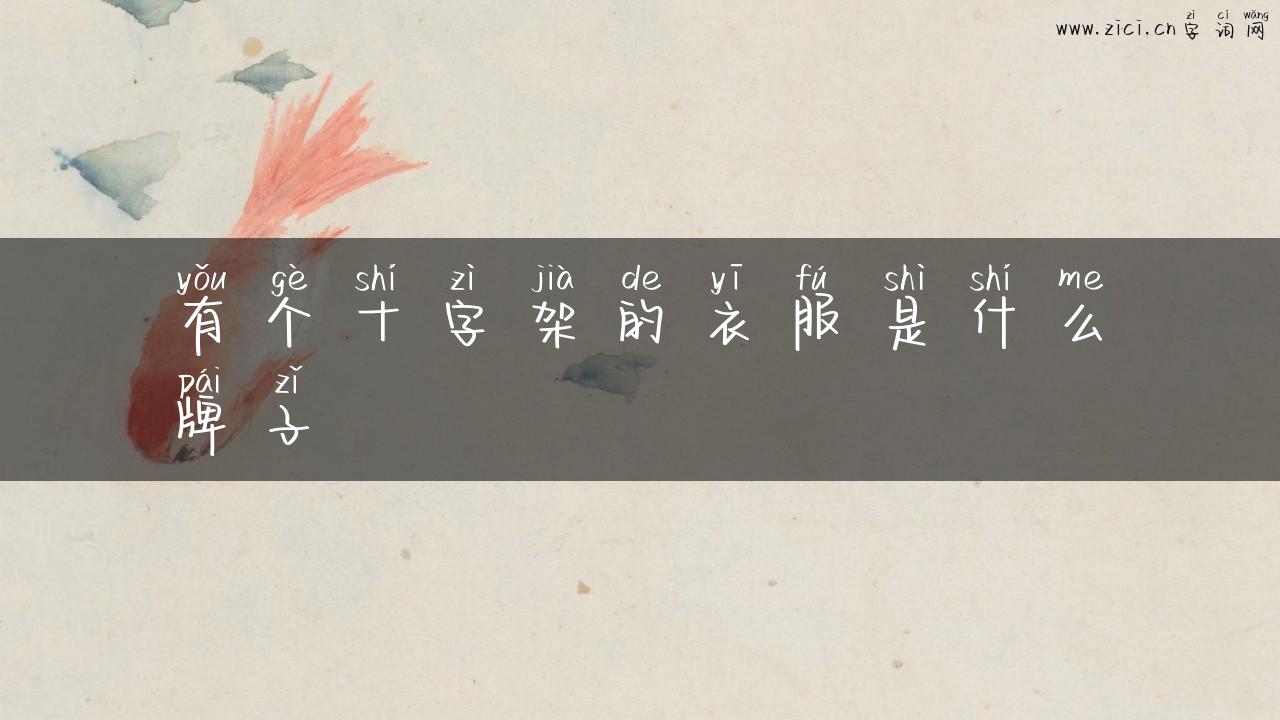 zì cí wǎng
www.zici.cn 字词网
yǒu gè shí zì jià de yī fú shì shí me
有个十字架的衣服是什么
pái zǐ
牌子